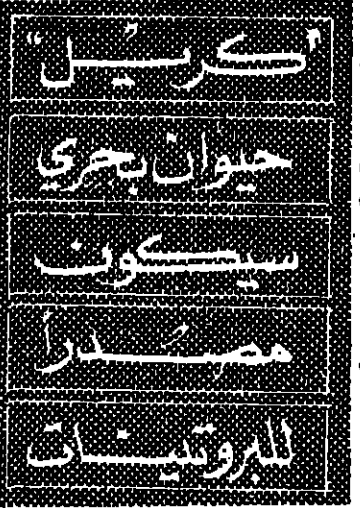 "كريل"
حيوان بحري
سيكون
مصدراً
للبروتينات